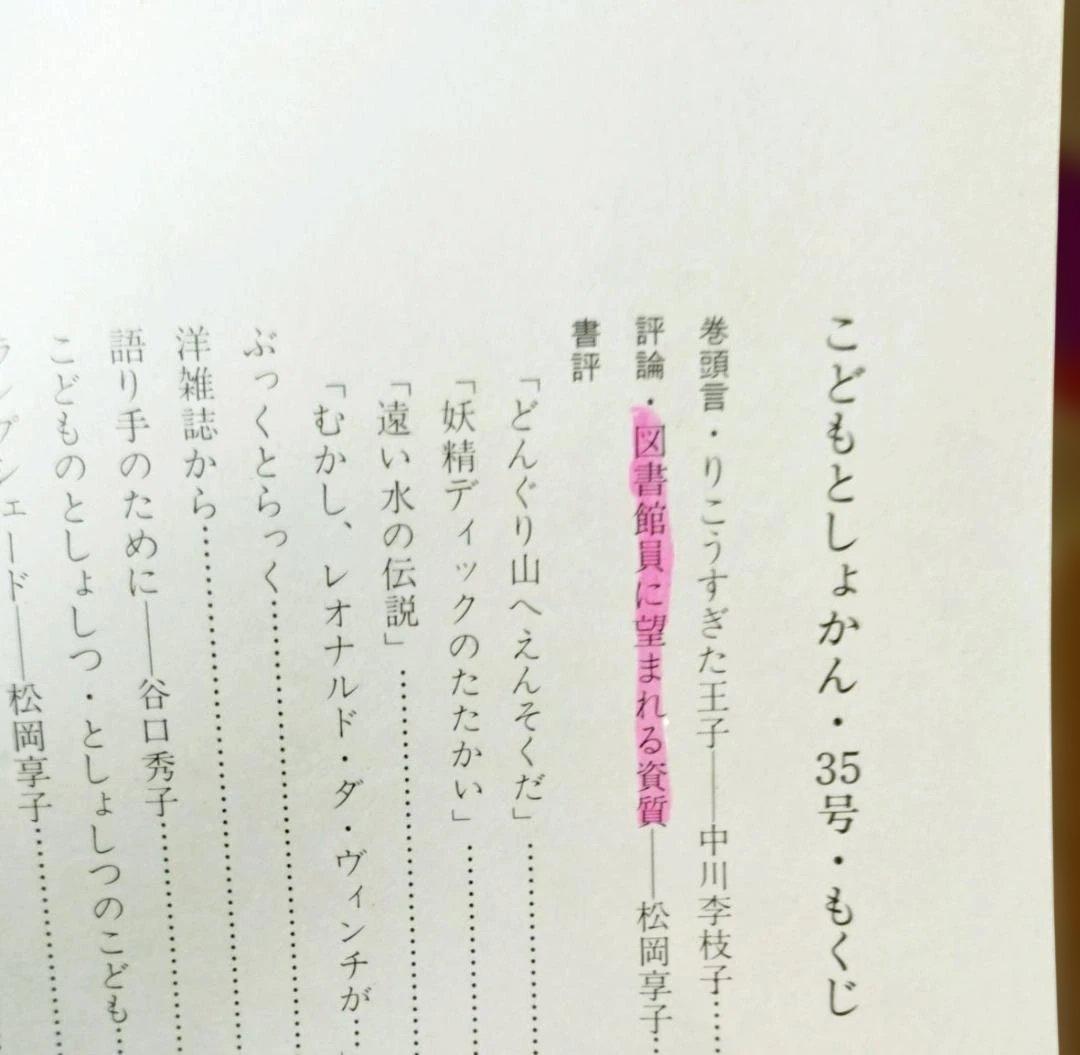 こどもとしょかん・35号・もくじ
巻頭言・りこうすぎた王子――中川李枝子……
評論・図書館員に望まれる資質――松岡享子……
書評
「どんぐり山へえんそくだ」……
「妖精ディックのたたかい」……
「遠い水の伝説」……
「むかし、レオナルド・ダ・ヴィンチが……」
ぶっくとらっく……
洋雑誌から……
語り手のために――谷口秀子
こどものとしょしつ・としょしつのこども……
ランプシェード――松岡享子……